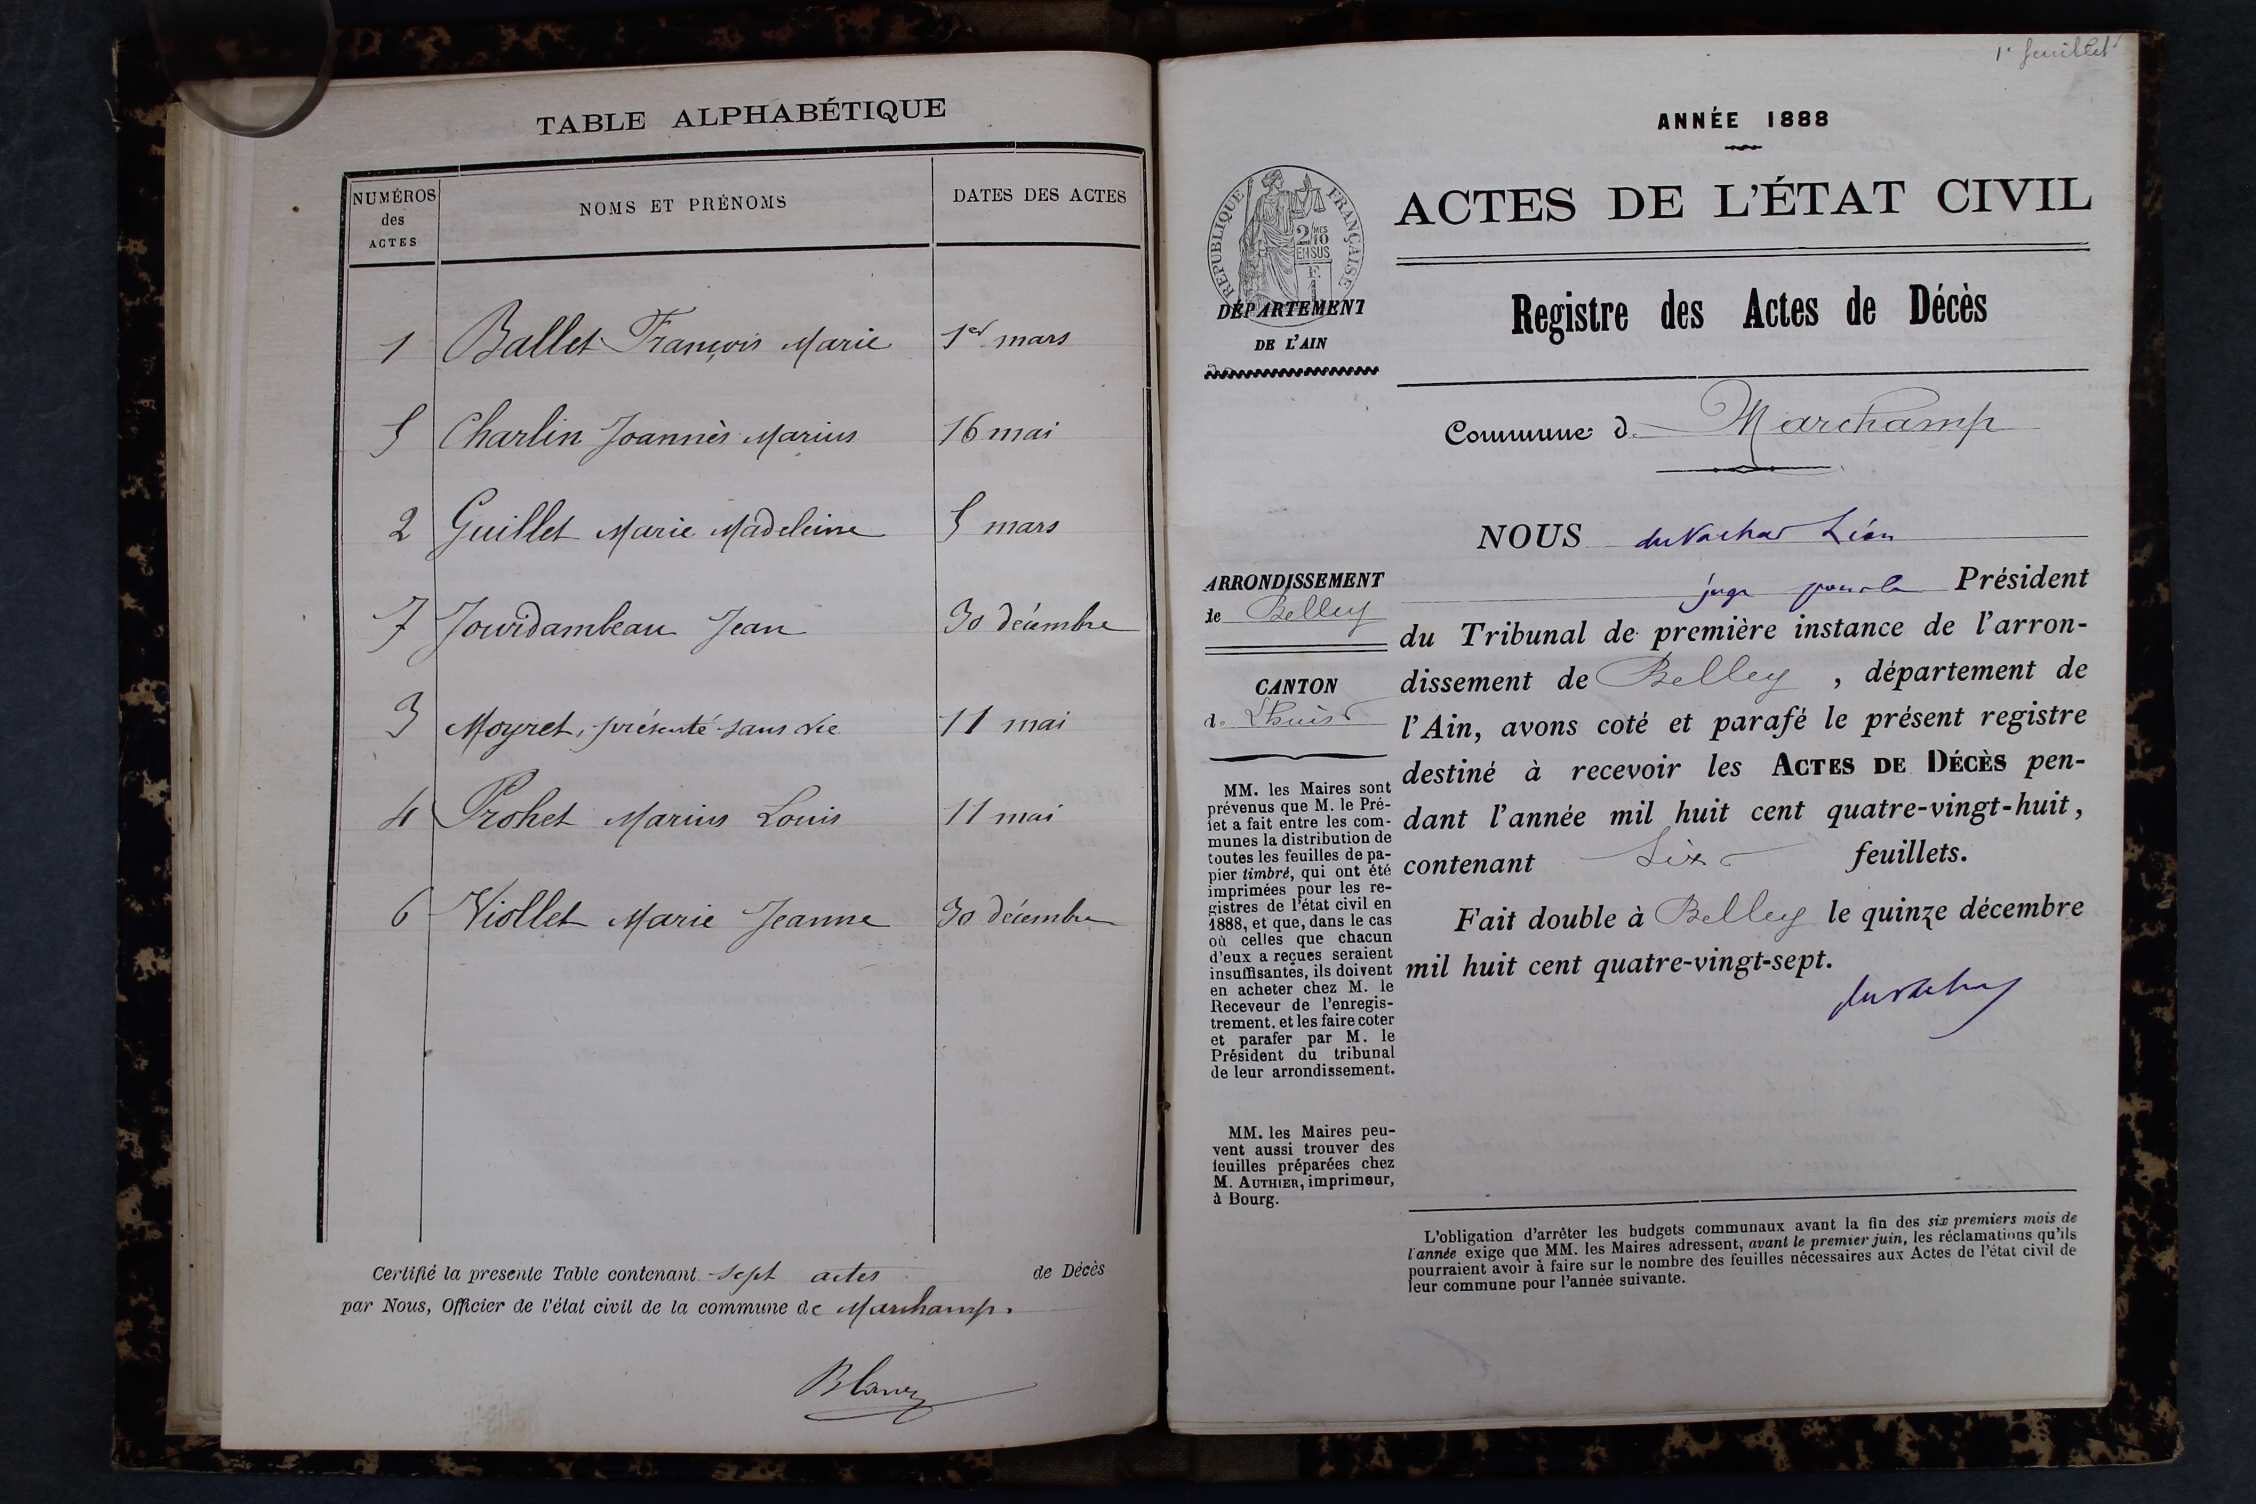 TABLE ALPHABÉTIQUE
NUMÉROS des ACTES NOMS ET PRÉNOMS DATES DES ACTES
1 Ballet François Marie 1er mars
5 Charlin Joannès Marius 16 mai
2 Guillet Marie Madeleine 5 mars
7 Jourdambeau Jean 30 décembre
3 Moyret, présenté sans vie 11 mai
4 Prohet Marius Louis 11 mai
6 Viollet Marie Jeanne 30 décembre
Certifié la presente Table contenant sept actes de Décès
par Nous, Officier de l'état civil de la commune de Marchamp.
1er feuillet
ANNÉE 1888
RÉPUBLIQUE FRANÇAISE
2/10 MES
EN SUS
F.
1
ACTES DE L'ÉTAT CIVIL
DÉPARTEMENT
DE L'AIN
Registre des Actes de Décès
Commune d Marchamp
ARRONDISSEMENT
de Belley
CANTON
d Lhuis
MM. les Maires sont
prévenus que M. le Pré-
fet a fait entre les com-
munes la distribution de
toutes les feuilles de pa-
pier timbré, qui ont été
imprimées pour les re-
gistres de l'état civil en
1888, et que, dans le cas
où celles que chacun
d'eux a reçues seraient
insuffisantes, ils doivent
en acheter chez M. le
Receveur de l'enregis-
trement. et les faire coter
et parafer par M. le
Président du tribunal
de leur arrondissement.
MM. les Maires peu-
vent aussi trouver des
feuilles préparées chez
M. AUTHIER, imprimeur,
à Bourg.
NOUS Léon
juge pour le Président
du Tribunal de première instance de l'arron-
dissement de Belley , département de
l'Ain, avons coté et parafé le présent registre
destiné à recevoir les ACTES DE DÉCÈS pen-
dant l'année mil huit cent quatre-vingt-huit,
contenant Six feuillets.
Fait double à Belley le quinze décembre
mil huit cent quatre-vingt-sept.
L'obligation d'arrêter les budgets communaux avant la fin des six premiers mois de
l'année exige que MM. les Maires adressent, avant le premier juin, les réclamations qu'ils
pourraient avoir à faire sur le nombre des feuilles nécessaires aux Actes de l'état civil de
leur commune pour l'année suivante.